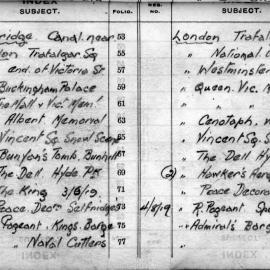 INDEX
SUBJECT. FOLIO. NEG. NO. SUBJECT.
ridge Canal near 53 London Trafal
on Trafalgar Sq 55 " National
end of Victoria St 57 " Westminster
Buckingham Palace 59 " Queen Vic. M
The Hall & Vic. Mem! 61 "
Albert Memorial 63 " Cenotaph
Vincent Sq. Snow Scene 65 " Vincent Sq. S
Bunyon's Tomb, Bunhill 67 " The Dell Hy
The Dell, Hyde Pk 69 (2) " Howker's
The King 3/8/19. 71 " Peace Decora
Peace, Decns Selfridges 73 4/8/19 " R. Pageant
Pageant, Kings. Barge 75 " Admiral's Barg
" Naval Cutters 77 "